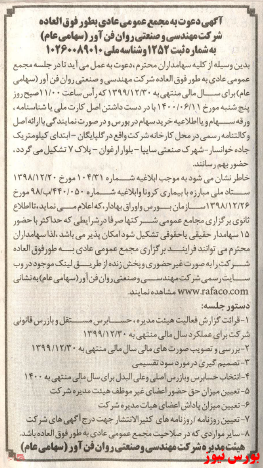 آگهی دعوت به مجمع عمومی عادی بطور فوق العاده
شرکت مهندسی و صنعتی روان فن آور (سهامی عام)
به شماره ثبت ۱۲۵۲ و شناسه ملی ۱۰۲۶۰۰۸۹۰۱۰
بدین وسیله از کلیه سهامداران محترم، دعوت به عمل می آید تا در جلسه مجمع
عمومی عادی به طور فوق العاده شرکت مهندسی و صنعتی روان فن آور (سهامی
عام) برای سال مالی منتهی به ۱۳۹۹/۱۲/۳۰ که رأس ساعت ۱۱:۰۰ صبح روز
پنج شنبه مورخ ۱۴۰۰/۰۶/۱۱ با در دست داشتن اصل کارت ملی یا شناسنامه،
ورقه سهام و یا اطلاعیه خرید سهام در بورس و در صورت نمایندگی با ارائه اصل
وکالتنامه رسمی در محل کارخانه شرکت واقع در گلپایگان - ابتدای کیلومتر یک
جاده خوانسار - شهرک صنعتی سایپا - بلوار ارغوان - پلاک ۷ تشکیل می گردد،
حضور بهم رسانند.
خاطر نشان می شود به موجب ابلاغیه شماره ۱۰۴/۳۱ مورخ ۱۳۹۸/۱۲/۲۰
ستاد ملی مبارزه با بیماری کرونا و ابلاغیه شماره ۴۴۰/۰۵۰/ب۹۸ مورخ
۱۳۹۸/۱۲/۲۶ سازمان بورس و اوراق بهادار، که اعلام می نماید، تا اطلاع
ثانوی برگزاری مجامع عمومی شرکتها صرفا در شرایطی که حداکثر با حضور
۱۵ سهامدار حقیقی یا حقوقی تشکیل شود امکان پذیر می باشد، لذا سهامداران
محترم می توانند فرایند برگزاری مجمع عمومی عادی به طور فوق العاده
شرکت را به صورت غیر حضوری و پخش زنده از طریق لینک موجود در وب
سایت رسمی شرکت مهندسی و صنعتی روان فن آور (سهامی عام) به نشانی
www.rafaco.com مشاهده نمایند.
دستور جلسه:
۱- قرائت گزارش فعالیت هیئت مدیره، حسابرس مستقل و بازرس قانونی
شرکت برای عملکرد سال مالی منتهی به ۱۳۹۹/۱۲/۳۰
۲- بررسی و تصویب صورت های مالی سال مالی منتهی به ۱۳۹۹/۱۲/۳۰
۳- تصمیم گیری در مورد سود تقسیمی
۴- انتخاب حسابرس و بازرس اصلی و علی البدل برای سال مالی منتهی به ۱۴۰۰
۵- تعیین میزان حق حضور اعضای غیر موظف هیئت مدیره شرکت
۶- تعیین میزان پاداش اعضای هیات مدیره شرکت
۷- تعیین روزنامه / روزنامه های کثیرالانتشار جهت درج آگهی های شرکت
۸- سایر مواردی که در صلاحیت مجمع عمومی عادی به طور فوق العاده باشد.
هیئت مدیره شرکت مهندسی و صنعتی روان فن آور (سهامی عام)
بورس نیوز